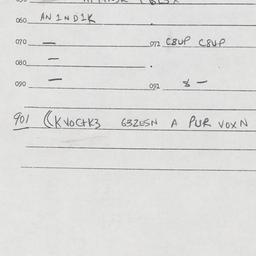 060 AN 1ND1K
070 — 072 C8UP C8UP
080 —
090 — 092 8 —
901 (KVOC+K3 63ZUSN A PUR VOXN